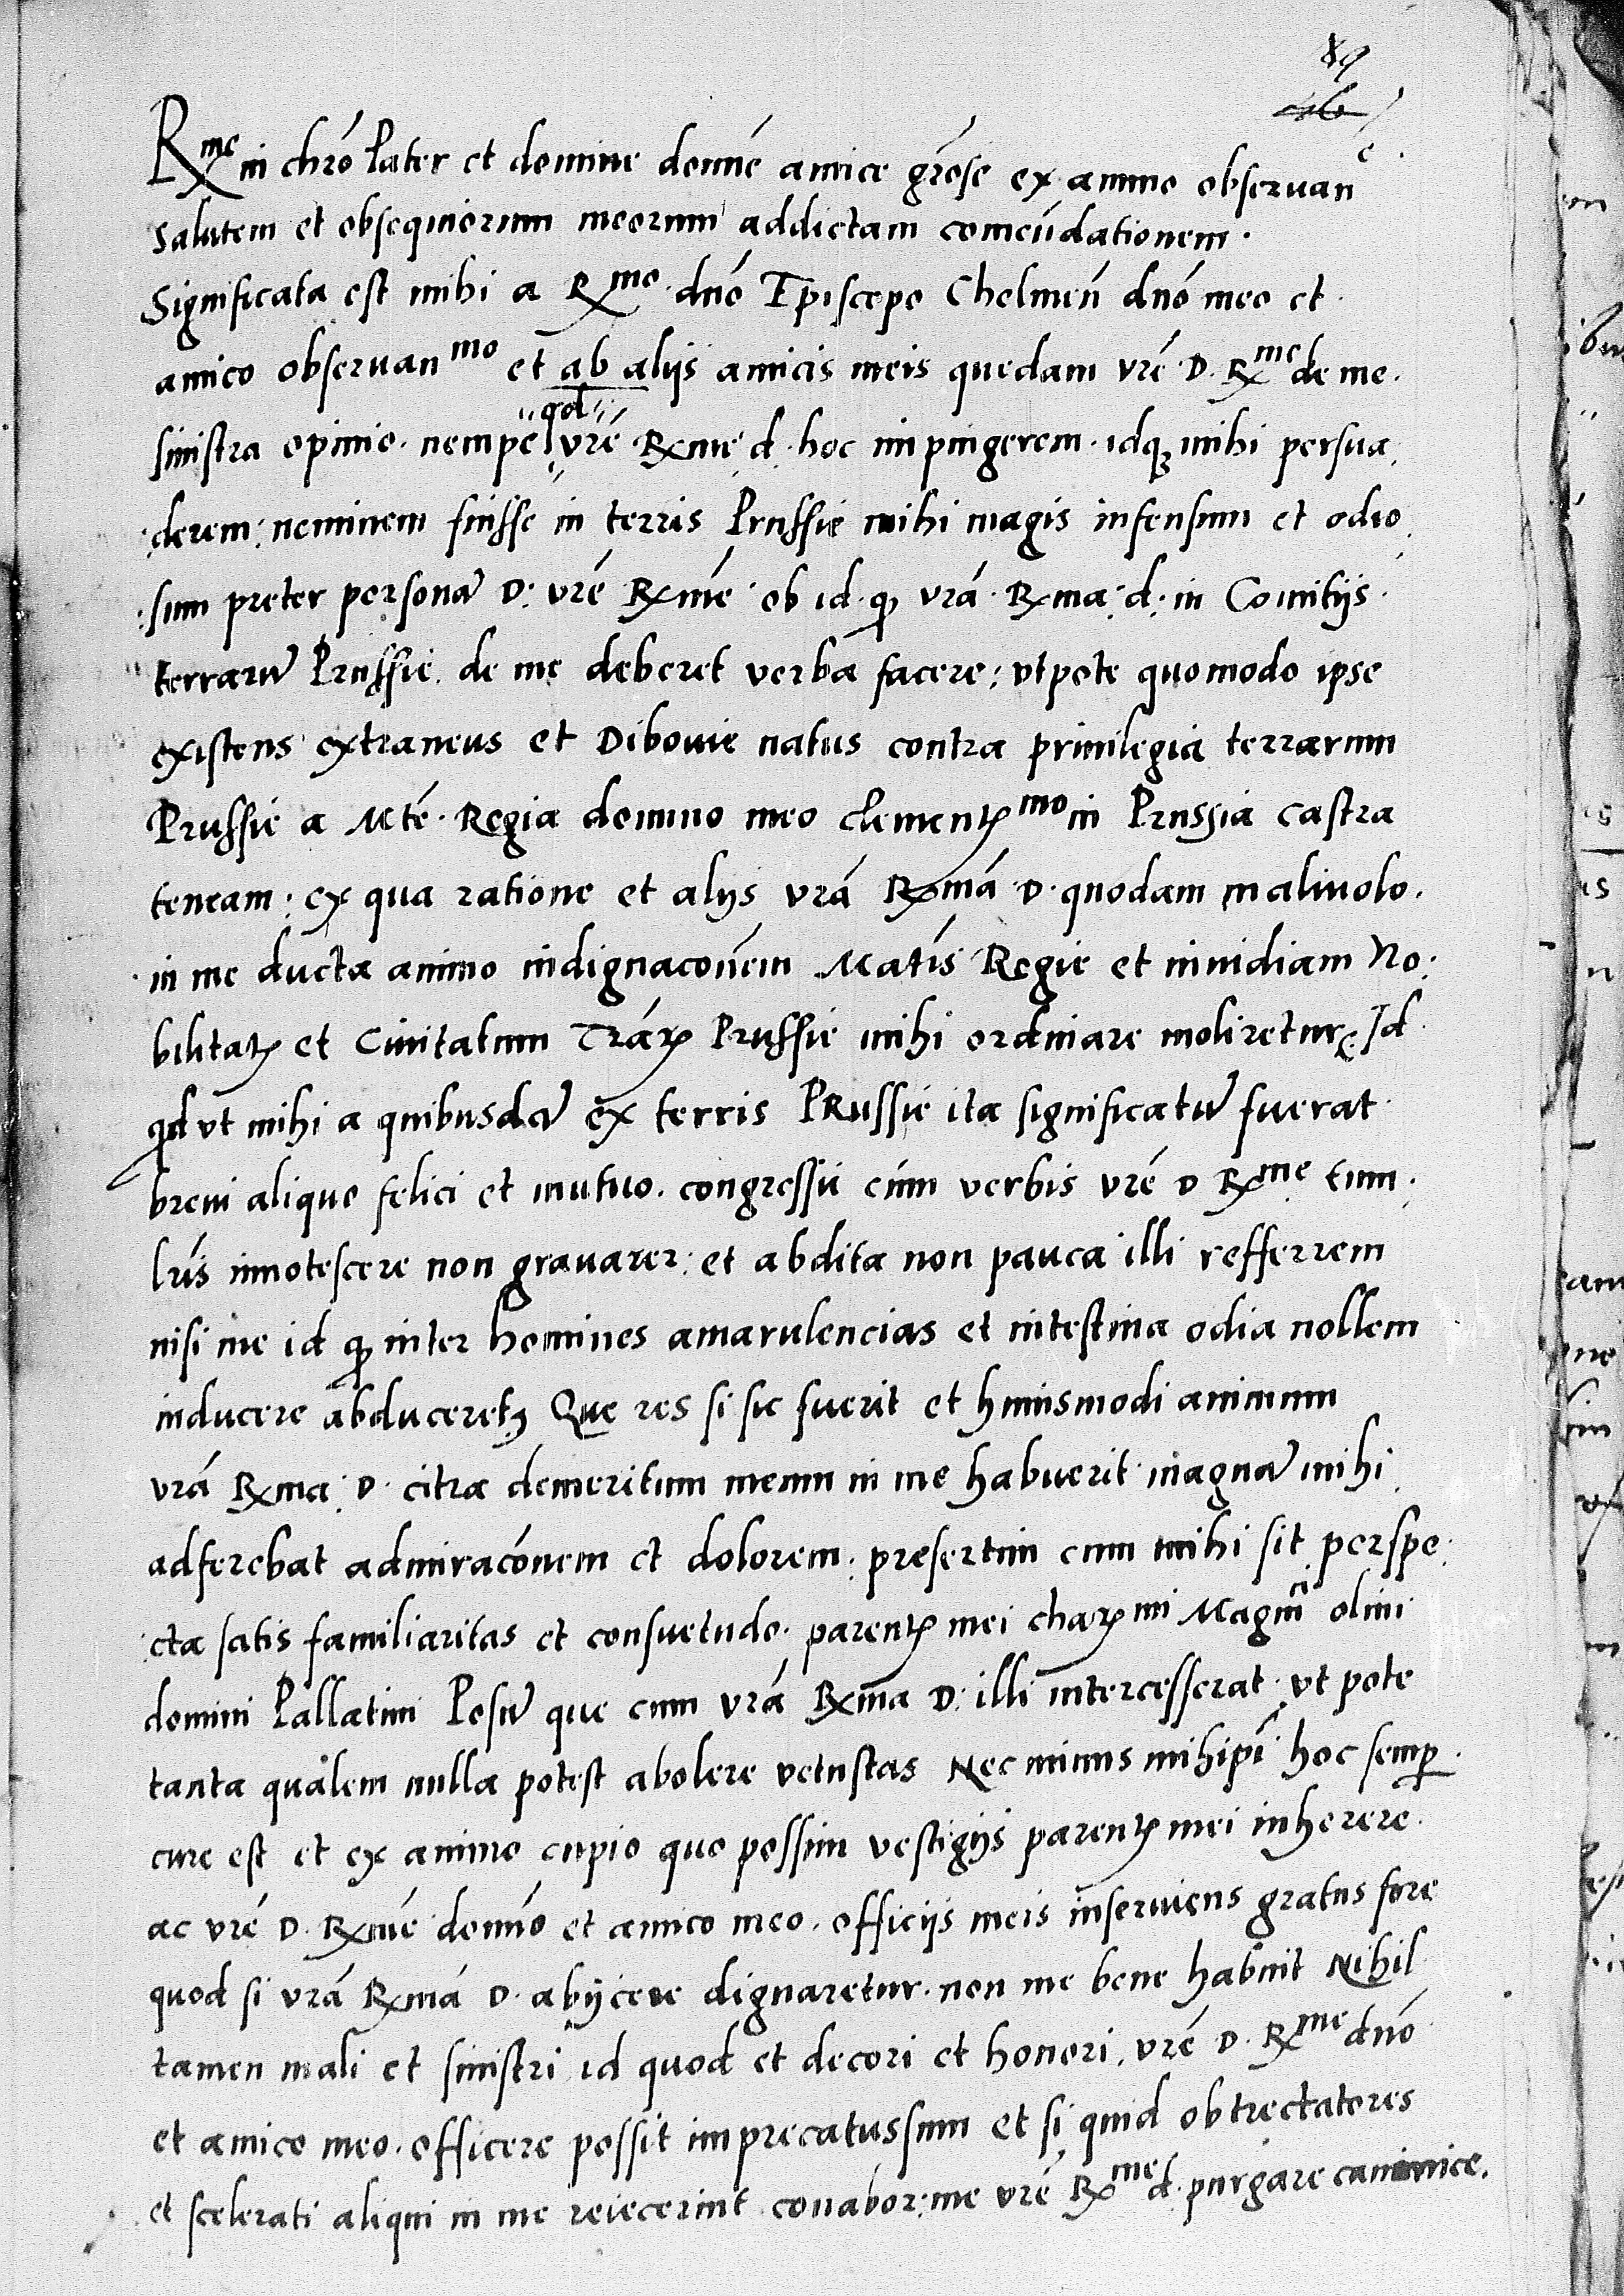 89
R^me in chro Pater et domine domne amice grose ex animo obseruan^e
Salutem et obsequiorum meorum addictam comendationem.
Significata est mihi a R^mo dno Episcopo Chelmen dno meo et
amico obseruan^mo et ab alijs amicis meis quedam vre D. R^me de me.
sinistra opinio. nempe qd vre Rme d. hoc impingerem. idq₃ mihi persua
derem: neminem fuisse in terris Prussie mihi magis infensum et odio
sum preter persona D: vre Rme ob id. q vra. Rma: d: in Comitijs.
terraru Prussie. de me deberet verba facere: vtpote quomodo ipse
existens extraneus et Dibouie natus contra priuilegia terrarum
Prussie a Mte. Regia domino meo clement^mo in Prussia castra
teneam: ex qua ratione et alijs vra Rma D. quodam maliuolo.
in me ducta animo indignaconem Matis Regie et inuidiam No:
bilitat et Ciuitatum Trar Prussie mihi ordinare moliretur Id
qd vt mihi a quibusda ex terris PRussie ita significatu fuerat
breui aliquo felici et mutuo. congressu cum verbis vre D R^me tum.
lris innotescere non grauarer: et abdita non pauca illi refferrem
nisi me id q inter homines amarulencias et intestina odia nollem
inducere abduceret Que res si sic fuerit et huiusmodi animum
vra Rma: D. citra demeritum meum in me habuerit magna mihi
adferebat admiraconem et dolorem: presertim cum mihi sit perspe
cta satis familiaritas et consuetudo. parent mei char^mi Magn^ci olim
domini Pallatini Posn que cum vra Rma D: illi intercesserat vt pote
tanta qualem nulla potest abolere vetustas Nec minus mihipi hoc semp
cure est et ex animo cupio quo possim vestigijs parent mei inherere
ac vre D. Rme domno et amico meo. officijs meis inseruiens gratus fore
quod si vra Rma D. abijcere dignaretur. non me bene habuit Nihil
tamen mali et sinistri id quod et decori et honori. vre D. R^me dno
et amico meo. officere possit imprecatussum et si quid obtrectatores
et scelerati aliqui in me reiecerint conabor: me vre R^me d. purgare